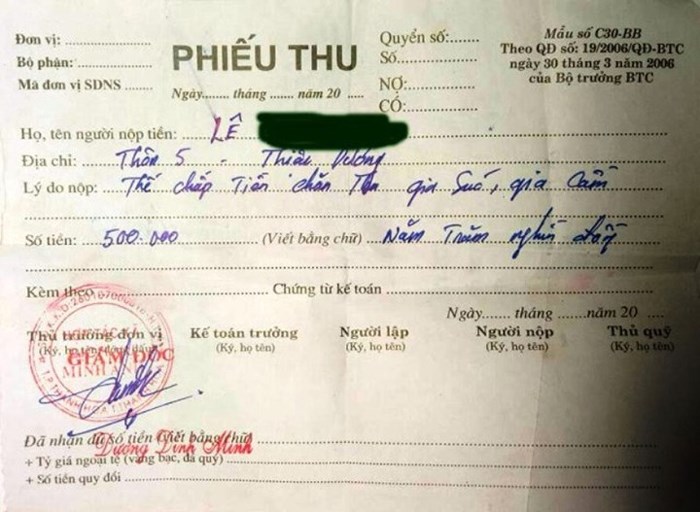 Đơn vị:
Bộ phận:
Mã đơn vị SDNS:
PHIẾU THU
Ngày....... tháng ....... năm 20 .....
Quyển số:.......
Số.............
NỢ:............
CÓ:............
Mẫu số C30-BB
Theo QĐ số: 19/2006/QĐ-BTC
ngày 30 tháng 3 năm 2006
của Bộ trưởng BTC
Họ, tên người nộp tiền: LÊ
Địa chỉ: Thôn 5 - Thiệu Dương
Lý do nộp: Thế chấp Tiền chăn gia Súc, gia Cầm
Số tiền: 500.000 (Viết bằng chữ) Năm Trăm nghìn đồng
Kèm theo Chứng từ kế toán
Ngày....... tháng .......năm 20 ......
Thủ trưởng đơn vị Kế toán trưởng Người lập Người nộp Thủ quỹ
(Ký, họ tên, (Ký, họ tên) (Ký, họ tên) (Ký, họ tên) (Ký, họ tên)
GIÁM ĐỐC
T.P THANH HÓA - T.THANH
Đã nhận đủ số tiền (Viết bằng chữ)
Dương Đình Minh
+ Tỷ giá ngoại tệ (vàng bạc, đá quý)
+ Số tiền quy đổi